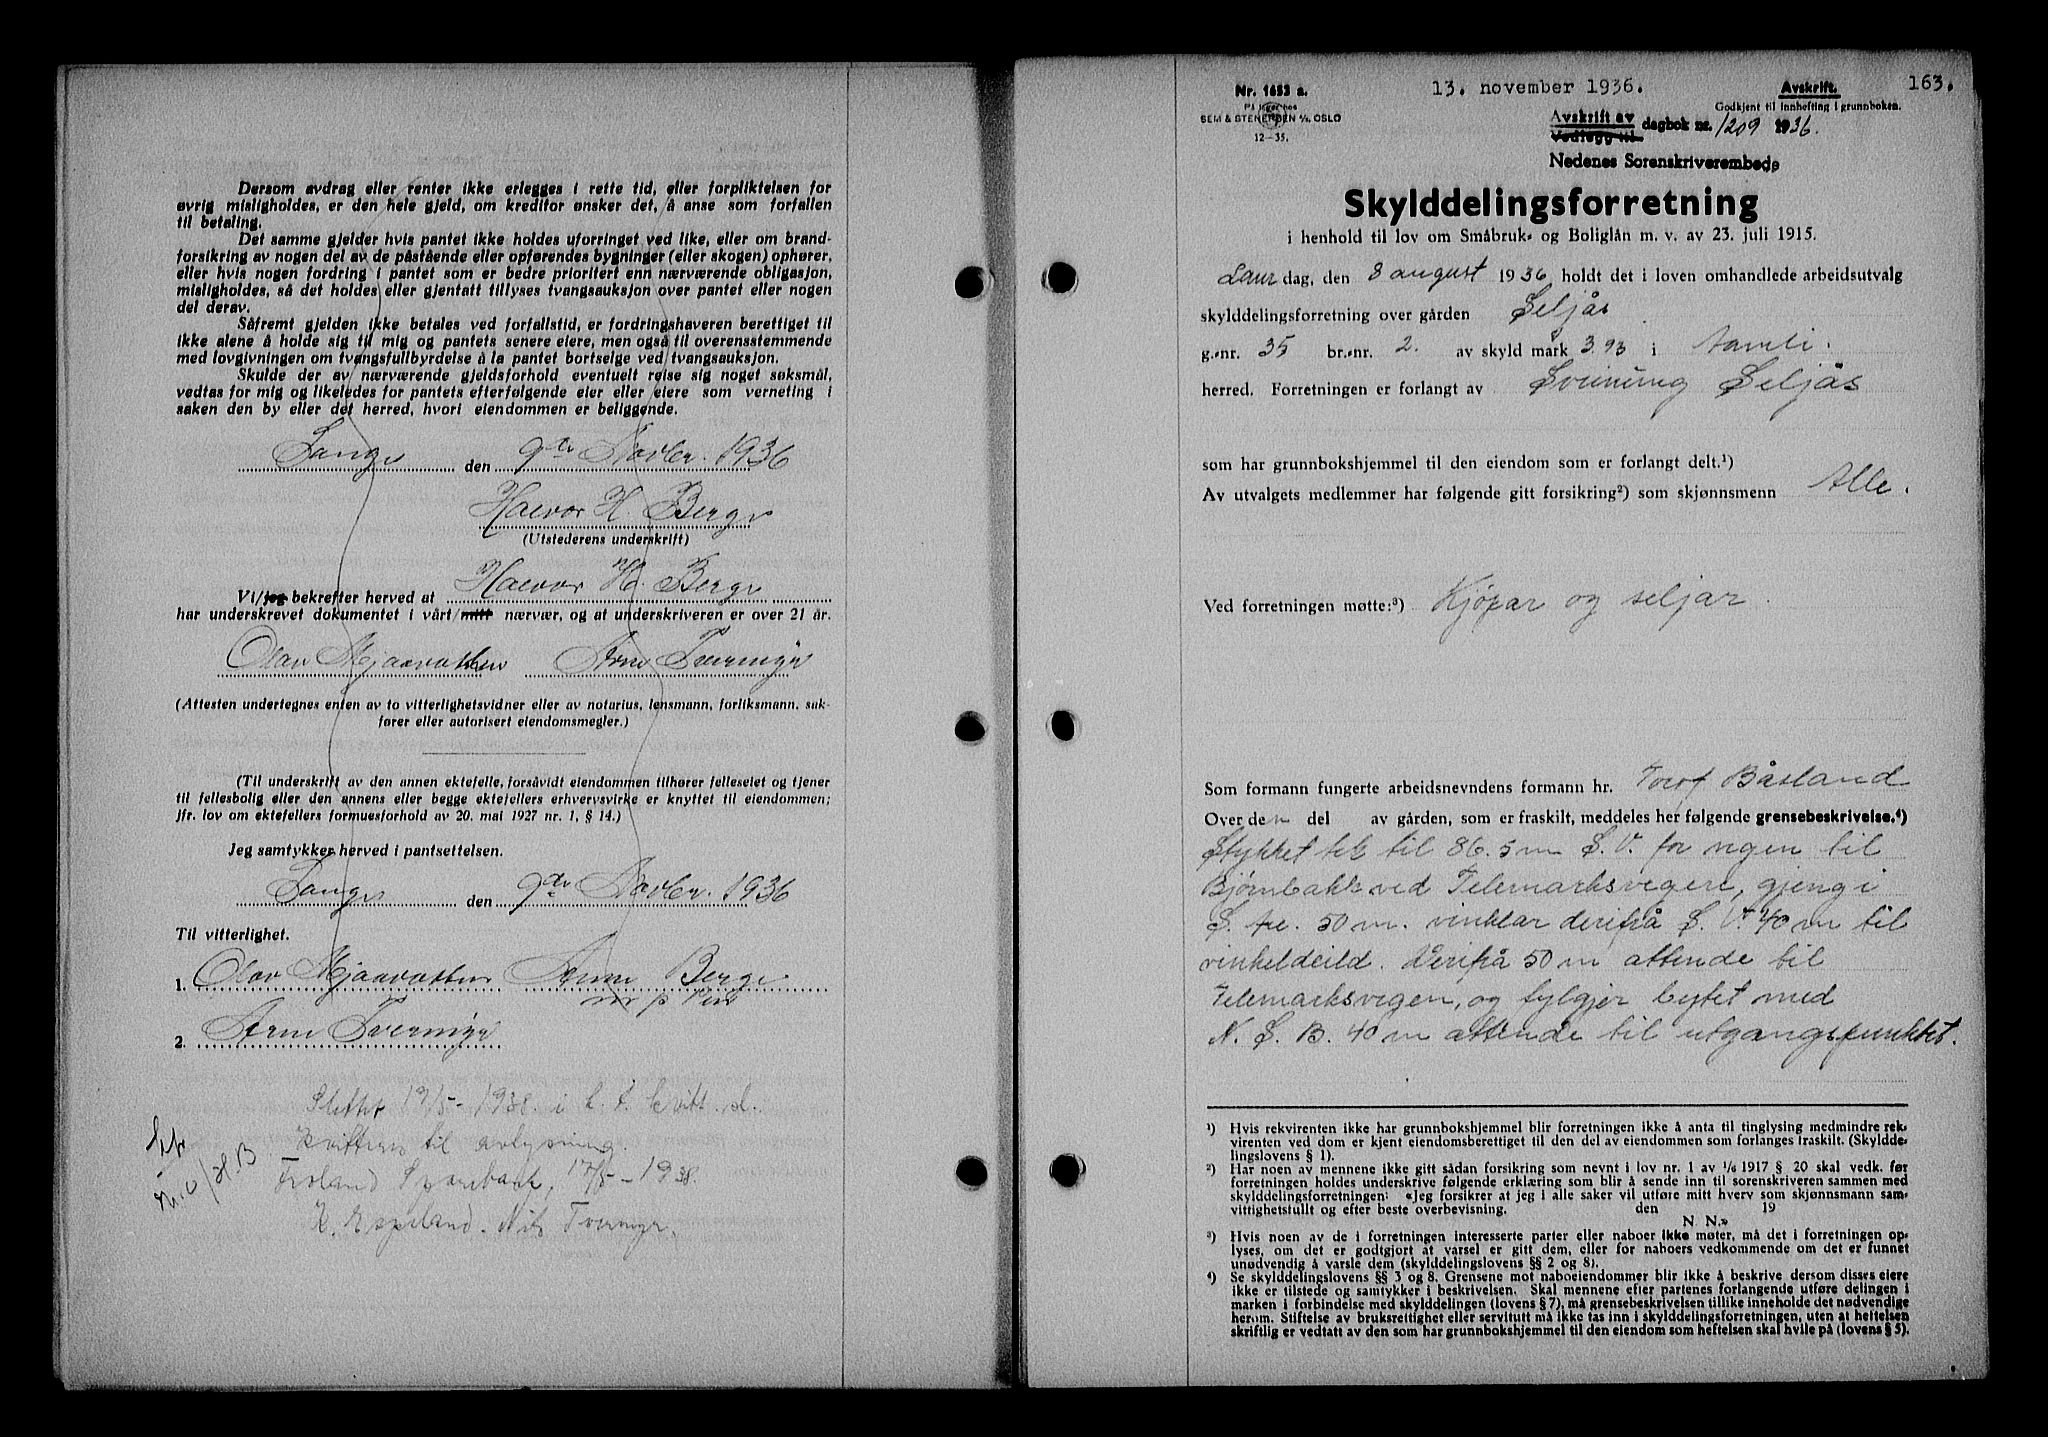 Dersom avdrag eller renter ikke erlegges i rette tid, eller forpliktelsen for
øvrig misligholdes, er den hele gjeld, om kreditor ønsker det, å anse som forfallen
til betaling.
Det samme gjelder hvis pantet ikke holdes uforringet ved like, eller om brand-
forsikring av nogen del av de påstående eller opførendes bygninger (eller skogen) ophører,
eller hvis nogen fordring i pantet som er bedre prioritert enn nærværende obligasjon,
misligholdes, så det holdes eller gjentatt tillyses tvangsauksjon over pantet eller nogen
del derav.
Såfremt gjelden ikke betales ved forfallstid, er fordringshaveren berettiget til
ikke alene å holde sig til mig og pantets senere eiere, men også til overensstemmende
med lovgivningen om tvangsfullbyrdelse å la pantet bortselge ved tvangsauksjon.
Skulde der av nærværende gjeldsforhold eventuelt reise sig noget søksmål,
vedtas for mig og likeledes for pantets efterfølgende eier eller eiere som verneting i
saken den by eller det herred, hvori eiendommen er beliggende.
den 9de Novbr. 1936
Halvor H. Berge
(Utstederens underskrift)
Vi/jeg bekrefter herved at Halvor H. Berge
har underskrevet dokumentet i vårt/mitt nærvær, og at underskriveren er over 21 år.
Olav Mjaavatten Arne Tvermyr
(Attesten undertegnes enten av to vitterlighetsvidner eller av notarius, lensmann, forliksmann, sak-
fører eller autorisert eiendomsmegler.)
(Til underskrift av den annen ektefelle, forsåvidt eiendommen tilhører felleseiet og tjener
til fellesbolig eller den annens eller begge ektefellers erhvervsvirke er knyttet til eiendommen;
jfr. lov om ektefellers formuesforhold av 20. mai 1927 nr. 1, § 14.)
Jeg samtykker herved i pantsettelsen.
den 9de Novbr. 1936
Til vitterlighet.
1. Olav Mjaavatten Anne Berge
m p Pen
2. Arne Tvermyr
Slettet 19/5-1938 i h. t. kvitt. d.
Kvitteres til avlysning.
Froland Sparebank, 17/5-1938.
K. Espeland. Nils Tvermyr.
Nr. 1653 a.
På lager hos
SEM & STENERSEN A/S, OSLO
12-35.
13. november 1936.
Avskrift.
163.
Godkjent til innhefting i grunnboken.
Avskrift av
Vedlegg til dagbok nr. 1209 1936.
Nedenes Sorenskriverembede
Skylddelingsforretning
i henhold til lov om Småbruk- og Boliglån m. v. av 23. juli 1915.
Laurdag, den 8 august 1936 holdt det i loven omhandlede arbeidsutvalg
skylddelingsforretning over gården Seljås
g.-nr. 35 br.-nr. 2. av skyld mark 3.93 i Aamli.
herred. Forretningen er forlangt av Sveinung Seljås
som har grunnbokshjemmel til den eiendom som er forlangt delt.¹)
Av utvalgets medlemmer har følgende gitt forsikring²) som skjønnsmenn Alle.
Ved forretningen møtte:³) Kjøpar og seljar.
Som formann fungerte arbeidsnevndens formann hr. Torof Båsland
Over den del av gården, som er fraskilt, meddeles her følgende grensebeskrivelse.⁴)
Stykket tek til 86.5 m S.V. for vegen til
Bjørnbakk ved Telemarksvegen, gjeng i
S. 50 m. vinklar derifrå S. V. 40 m til
vinkeldeild. Derifrå 50 m attende til
Telemarksvegen, og fylgjer bytet med
N. S. B. 40 m attende til utgangspunktet.
¹) Hvis rekvirenten ikke har grunnbokshjemmel blir forretningen ikke å anta til tinglysing medmindre rek-
virenten ved dom er kjent eiendomsberettiget til den del av eiendommen som forlanges fraskilt. (Skyldde-
lingslovens § 1).
²) Har noen av mennene ikke gitt sådan forsikring som nevnt i lov nr. 1 av 1/6 1917 § 20 skal vedk. før
forretningen holdes underskrive følgende erklæring som blir å sende inn til sorenskriveren sammen med
skylddelingsforretningen: «Jeg forsikrer at jeg i alle saker vil utføre mitt hverv som skjønnsmann sam-
vittighetsfullt og efter beste overbevisning. den 19
N. N.»
³) Hvis noen av de i forretningen interesserte parter eller naboer ikke møter, må det i forretningen op-
lyses, om det er godtgjort at varsel er gitt dem, eller for naboers vedkommende om det er funnet
unødvendig å varsle dem (skylddelingslovens §§ 2 og 8).
⁴) Se skylddelingslovens §§ 3 og 8. Grensene mot naboeiendommer blir ikke å beskrive dersom disses eiere
ikke er tilstede og samtykker i beskrivelsen. Skal mennene efter partenes forlangende utføre delingen i
marken i forbindelse med skylddelingen (lovens § 7), må grensebeskrivelsen tillike inneholde det nødvendige
herom. Stiftelse av bruksrettighet eller servitutt må ikke tas inn i skylddelingsforretningen, uten at heftelsen
skriftlig er vedtatt av den som har grunnbokshjemmel til den eiendom som heftelsen skal hvile på (lovens § 5).